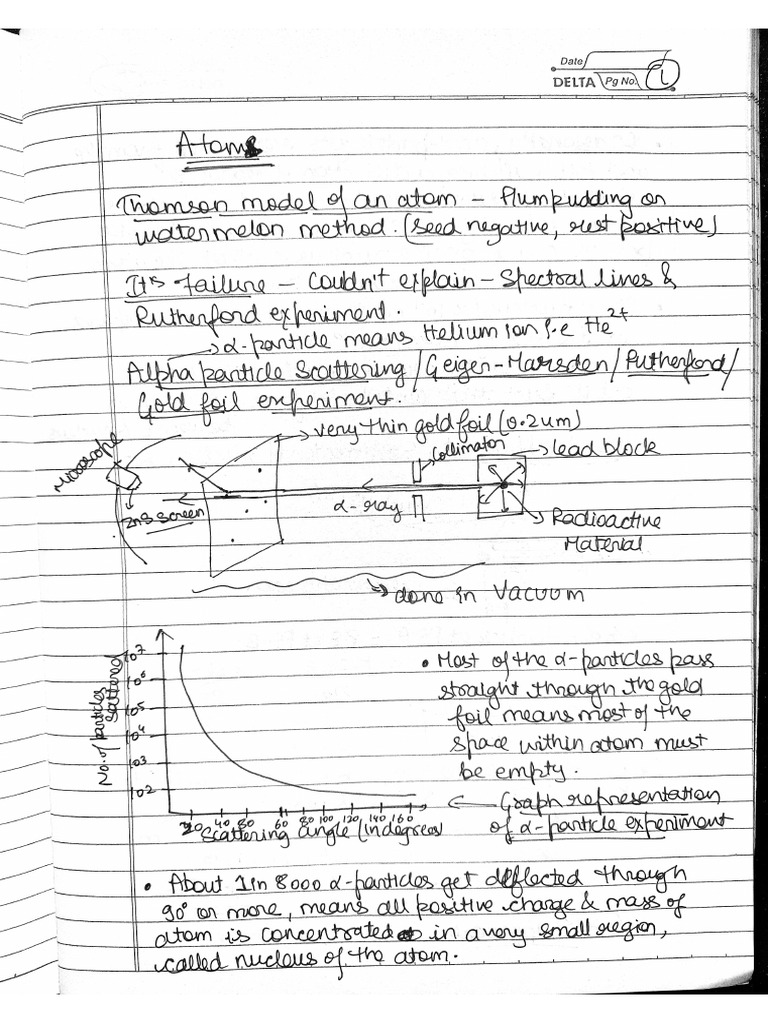 Date
DELTA Pg No. 1
Atoms
Thomson model of an atom - Plumpudding or
watermelon method. (seed negative, rest positive)
It's Failure - Couldn't explain - Spectral lines &
Rutherford experiment.
α-particle means Helium ion i.e He²⁺
Alpha particle Scattering / Geiger-Marsden / Rutherford /
Gold foil experiment.
very thin gold foil (0.2um)
Collimator
lead block
Microscope
ZnS screen
α-ray
Radioactive
Material
done in Vacuum
No. of particles
scattered
10⁷
10⁶
10⁵
10⁴
10³
10²
20 40 80 60 80 100 120 140 160
Scattering angle (in degrees)
• Most of the α-particles pass
straight through the gold
foil means most of the
space within atom must
be empty.
← Graph representation
of α-particle experiment
• About 1 in 8000 α-particles get deflected through
90° or more, means all positive charge & mass of
atom is concentrated in a very small region,
called nucleus of the atom.